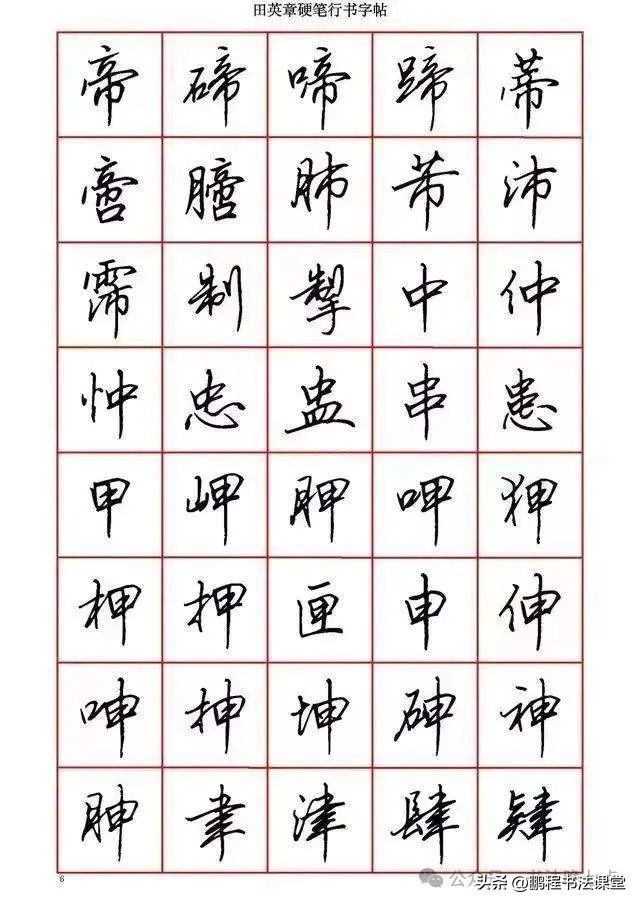 田英章硬笔行书字帖
帝 碲 啼 蹄 蒂
啻 膪 肺 芾 沛
霈 制 掣 中 仲
忡 忠 盅 串 患
甲 岬 胛 呷 狎
柙 押 匣 申 伸
呻 抻 坤 砷 神
胂 聿 津 肆 肄
6
头条 @鹏程书法课堂